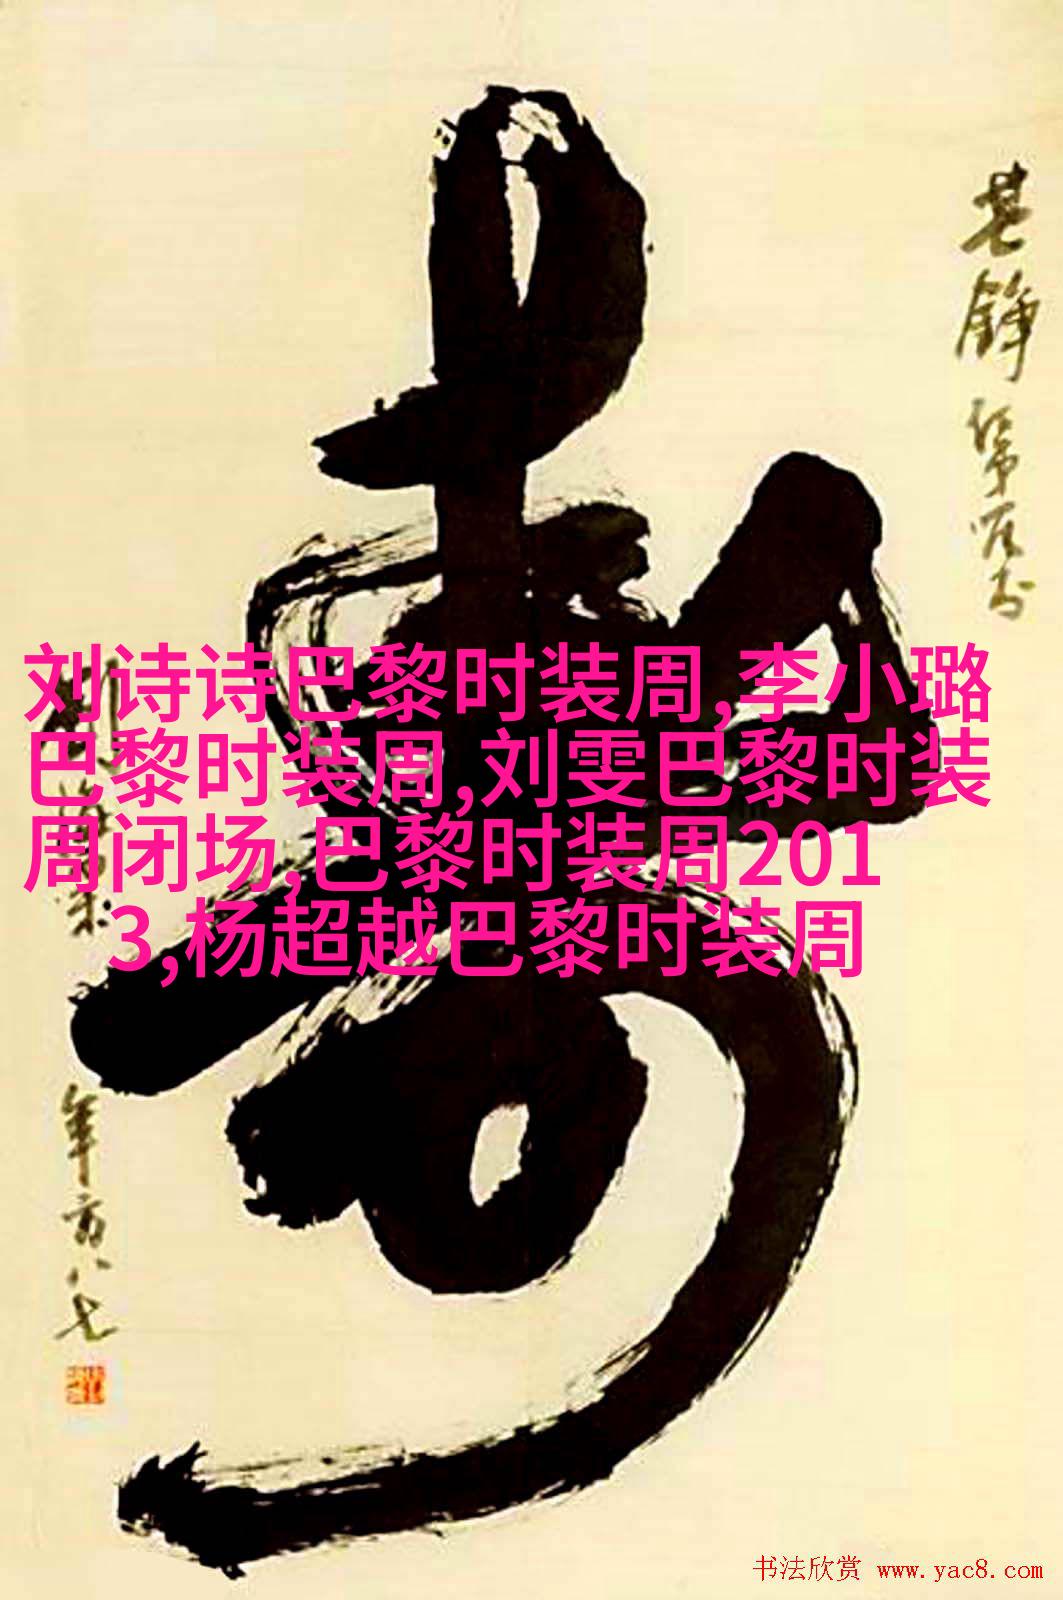 寿
刘诗诗巴黎时装周,李小璐
巴黎时装周,刘雯巴黎时装
周闭场,巴黎时装周201
3,杨超越巴黎时装周
年方八七
书法欣赏 www.yac8.com